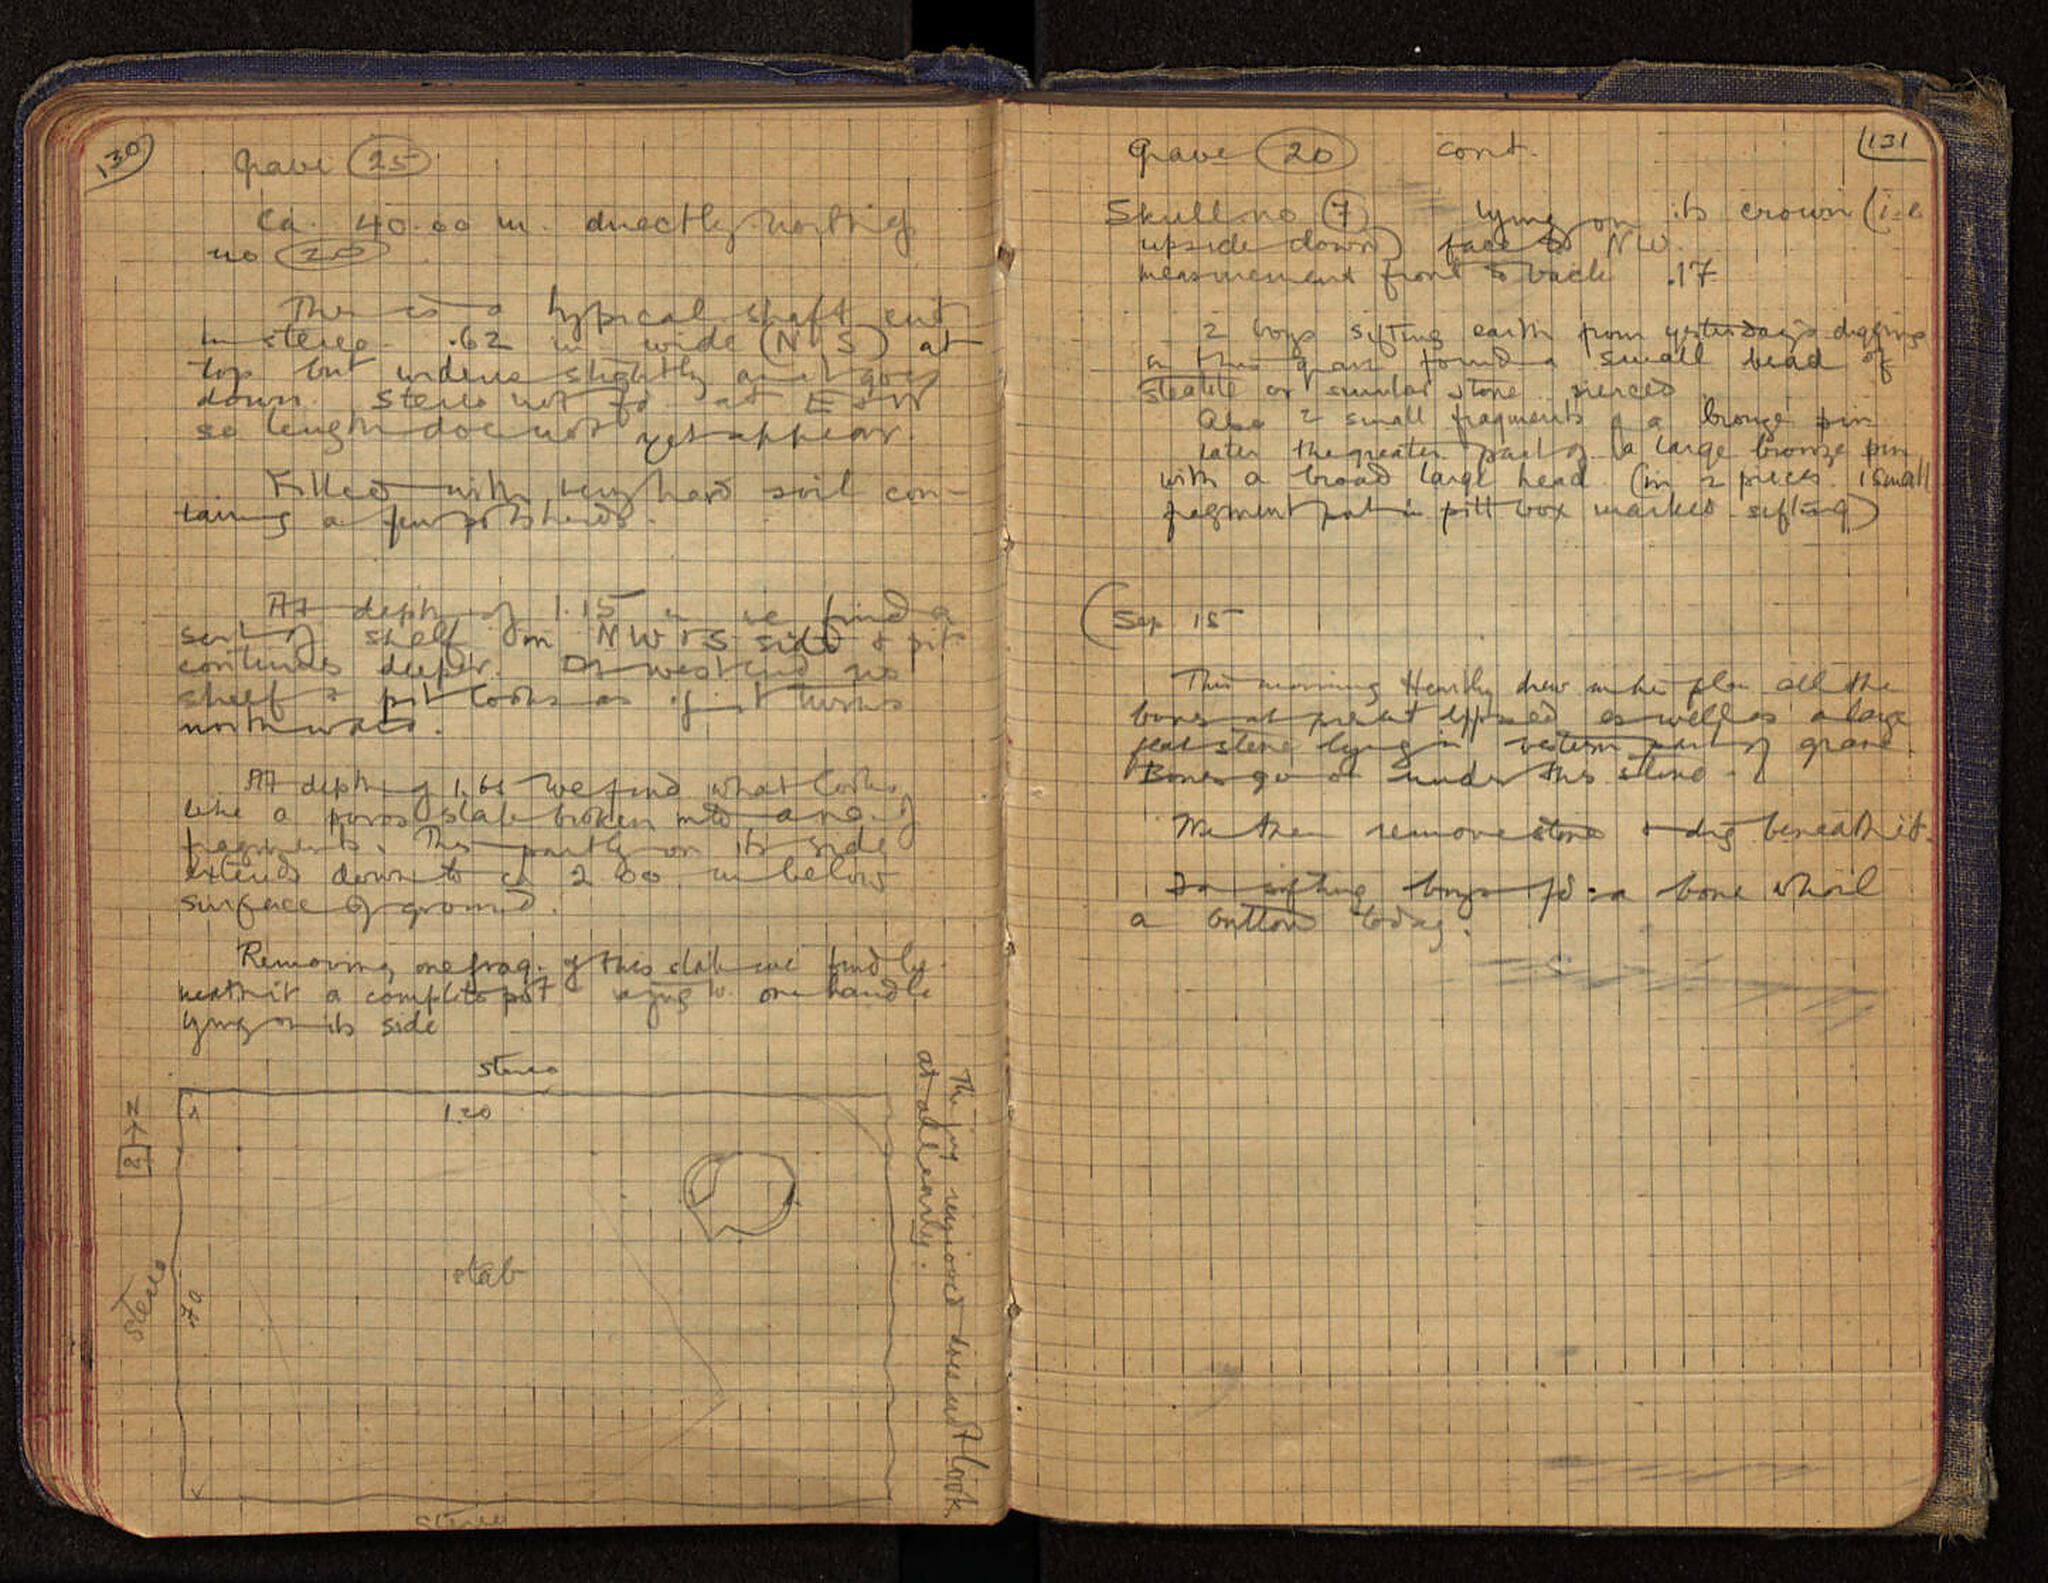 130
Grave 25
Ca. 40.00 m. directly north of
no 20
There is a typical shaft cut
in stereo .62 m wide (N-S) at
top but widens slightly as it goes
down. Stereo not fd. at E & W
so length does not yet appear.
Filled with very hard soil con-
taining a few potsherds.
At depth of 1.15 m we find a
sort of shelf on N W & S side & pit
continues deeper. At west end no
shelf & pit looks as if it turns
northward.
At depth of 1.65 we find what looks
like a poros slab broken into a no. of
fragments. This partly on its side
extends down to ca 2.00 m below
surface of ground.
Removing one frag. of this slab we find be-
neath it a complete pot a jug w. one handle
lying on its side
stereo
1.20
N
slab
stereo
.70
stereo
The jug removed does not look
at all early.
131
Grave 20 cont.
Skull no 7 lying on its crown (i.e
upside down) face to NW.
measurement front to back .17
2 boys sifting earth from yesterday's digging
in this grave found a small bead of
steatite or similar stone pierced
Also 2 small fragments of a bronze pin
later the greater part of a large bronze pin
with a broad large head (in 2 pieces 1 small
fragment put in pill box marked sifting)
(Sep 15
This morning Heurtley drew in his plan all the
bones at present exposed as well as a large
flat stone lying in western part of grave.
Bones go on under this stone.
We then remove stone & dig beneath it.
In sifting boys fd. a bone whorl
a button today.